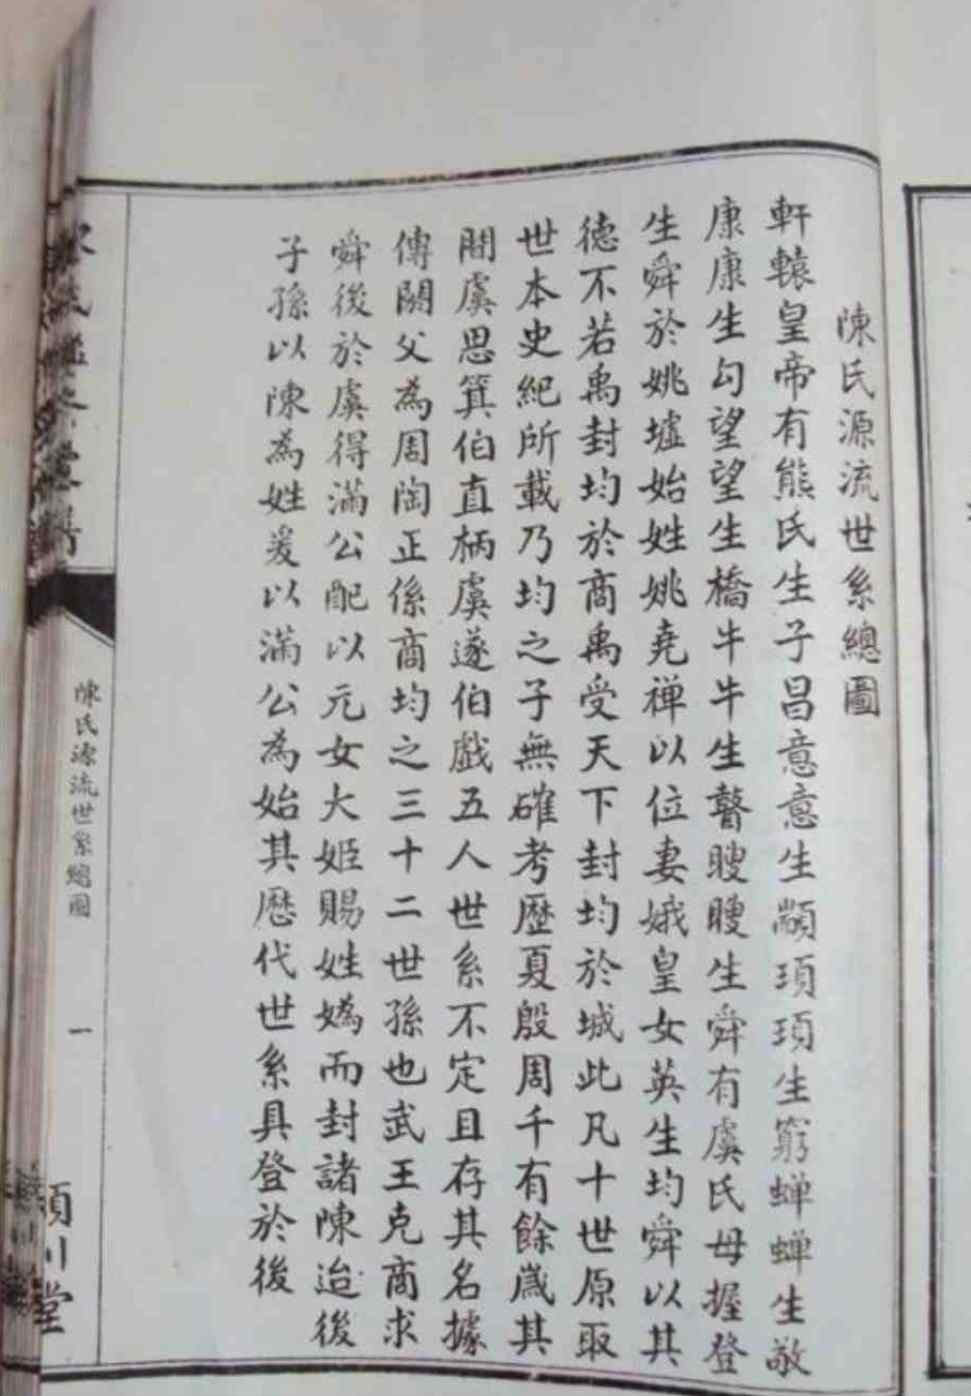 陳氏源流世系總圖
軒轅皇帝有熊氏生子昌意意生顓頊頊生窮蟬蟬生敬
康康生勾望望生橋牛牛生瞽瞍瞍生舜有虞氏母握登
生舜於姚墟始姓姚堯禪以位妻娥皇女英生均舜以其
德不若禹封均於商禹受天下封均於城此凡十世原取
世本史紀所載乃均之子無確考歷夏殷周千有餘歲其
間虞思箕伯直柄虞遂伯戲五人世系不定且存其名據
傳閼父為周陶正係商均之三十二世孫也武王克商求
舜後於虞得滿公配以元女大姬賜姓媯而封諸陳迨後
子孫以陳為姓爰以滿公為始其歷代世系具登於後
陳氏源流世系總圖
一
川堂